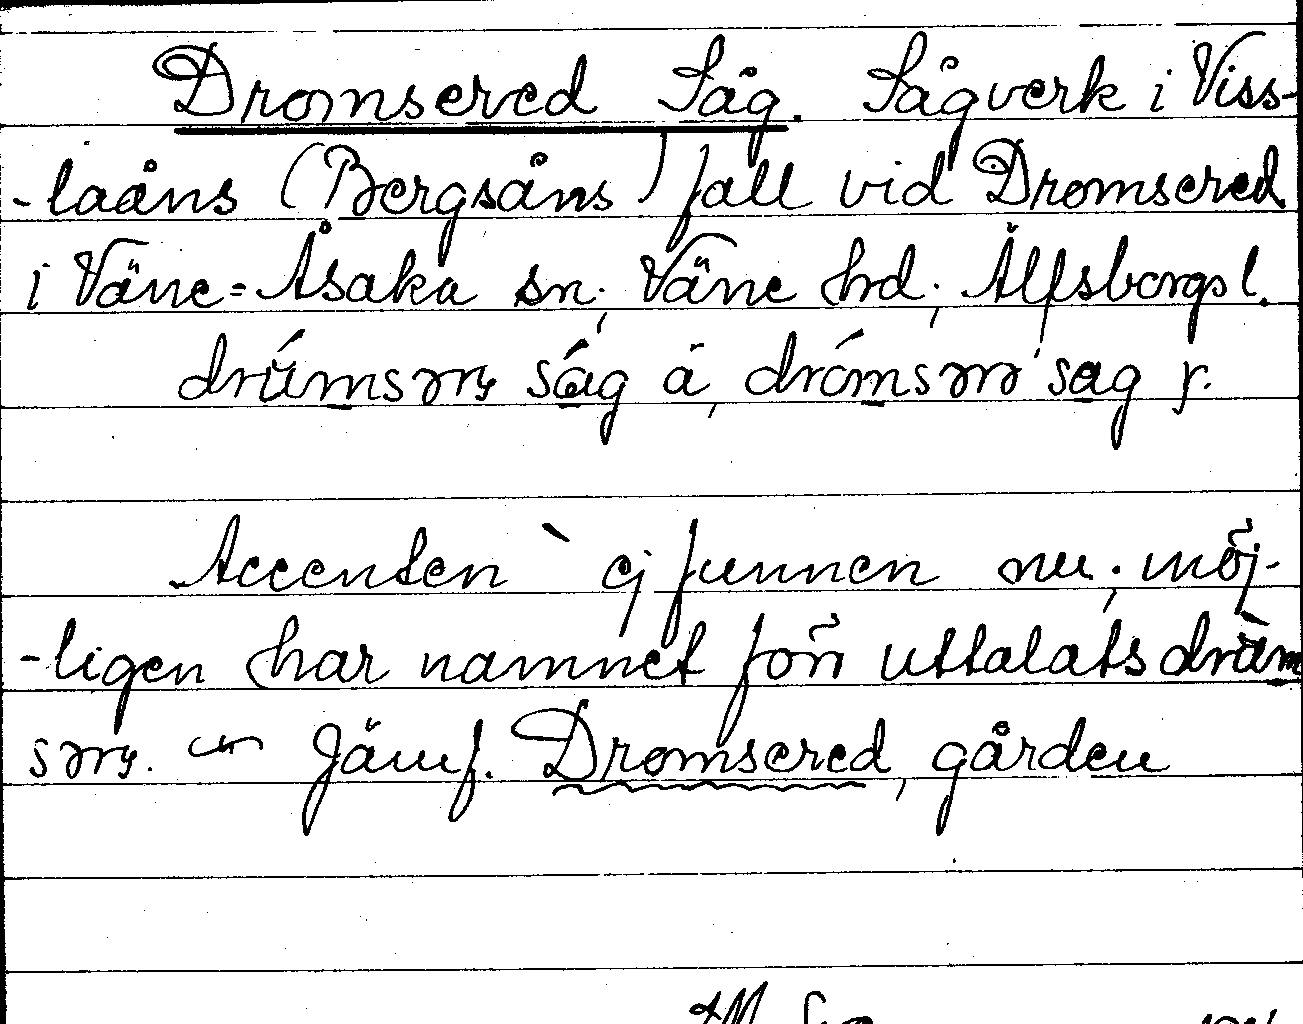 Dromsered Såg. Sågverk i Viss-
-laåns (Bergsåns) fall vid Dromsered
i Väne-Åsaka sn; Väne hd; Älfsborgs l.
såg å, sag
Accenten ` ej funnen nu; möj-
-ligen har namnet förr uttalats
Jämf. Dromsered, gården